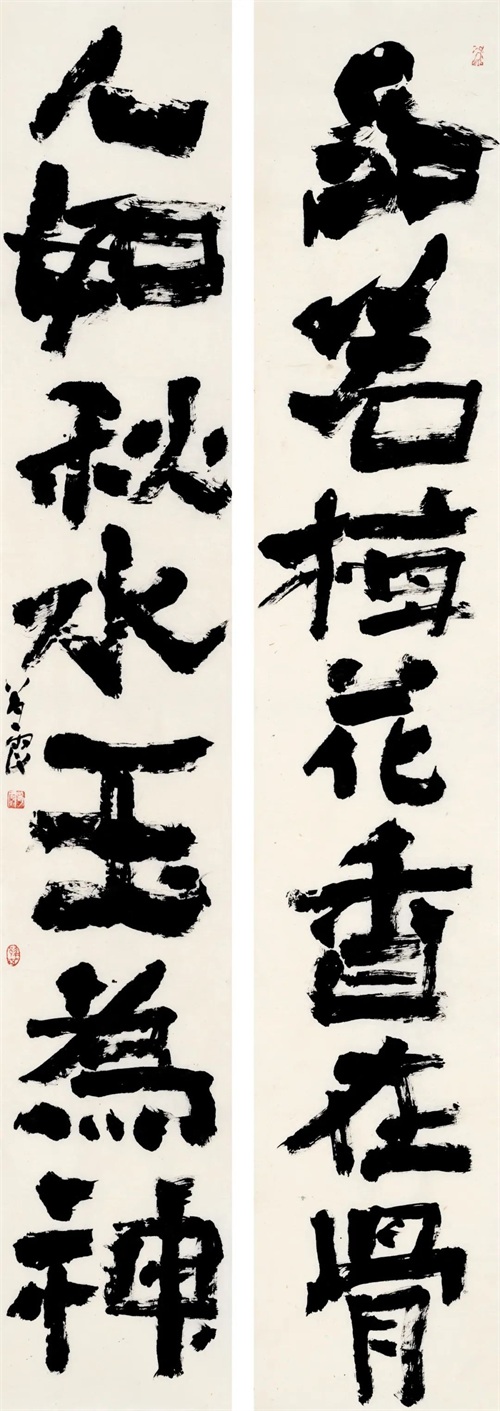 品若梅花香在骨
人如秋水玉为神